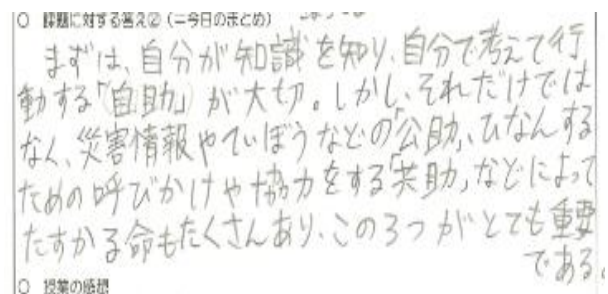 ○ 課題に対する答え②(=今日のまとめ)
まずは、自分が知識を知り、自分で考えて行
動する「自助」が大切。しかし、それだけでは
なく、災害情報やていぼうなどの「公助」、ひなんする
ための呼びかけや協力をする「共助」などによって
たすかる命もたくさんあり、この3つがとても重要
である。
○ 授業の感想